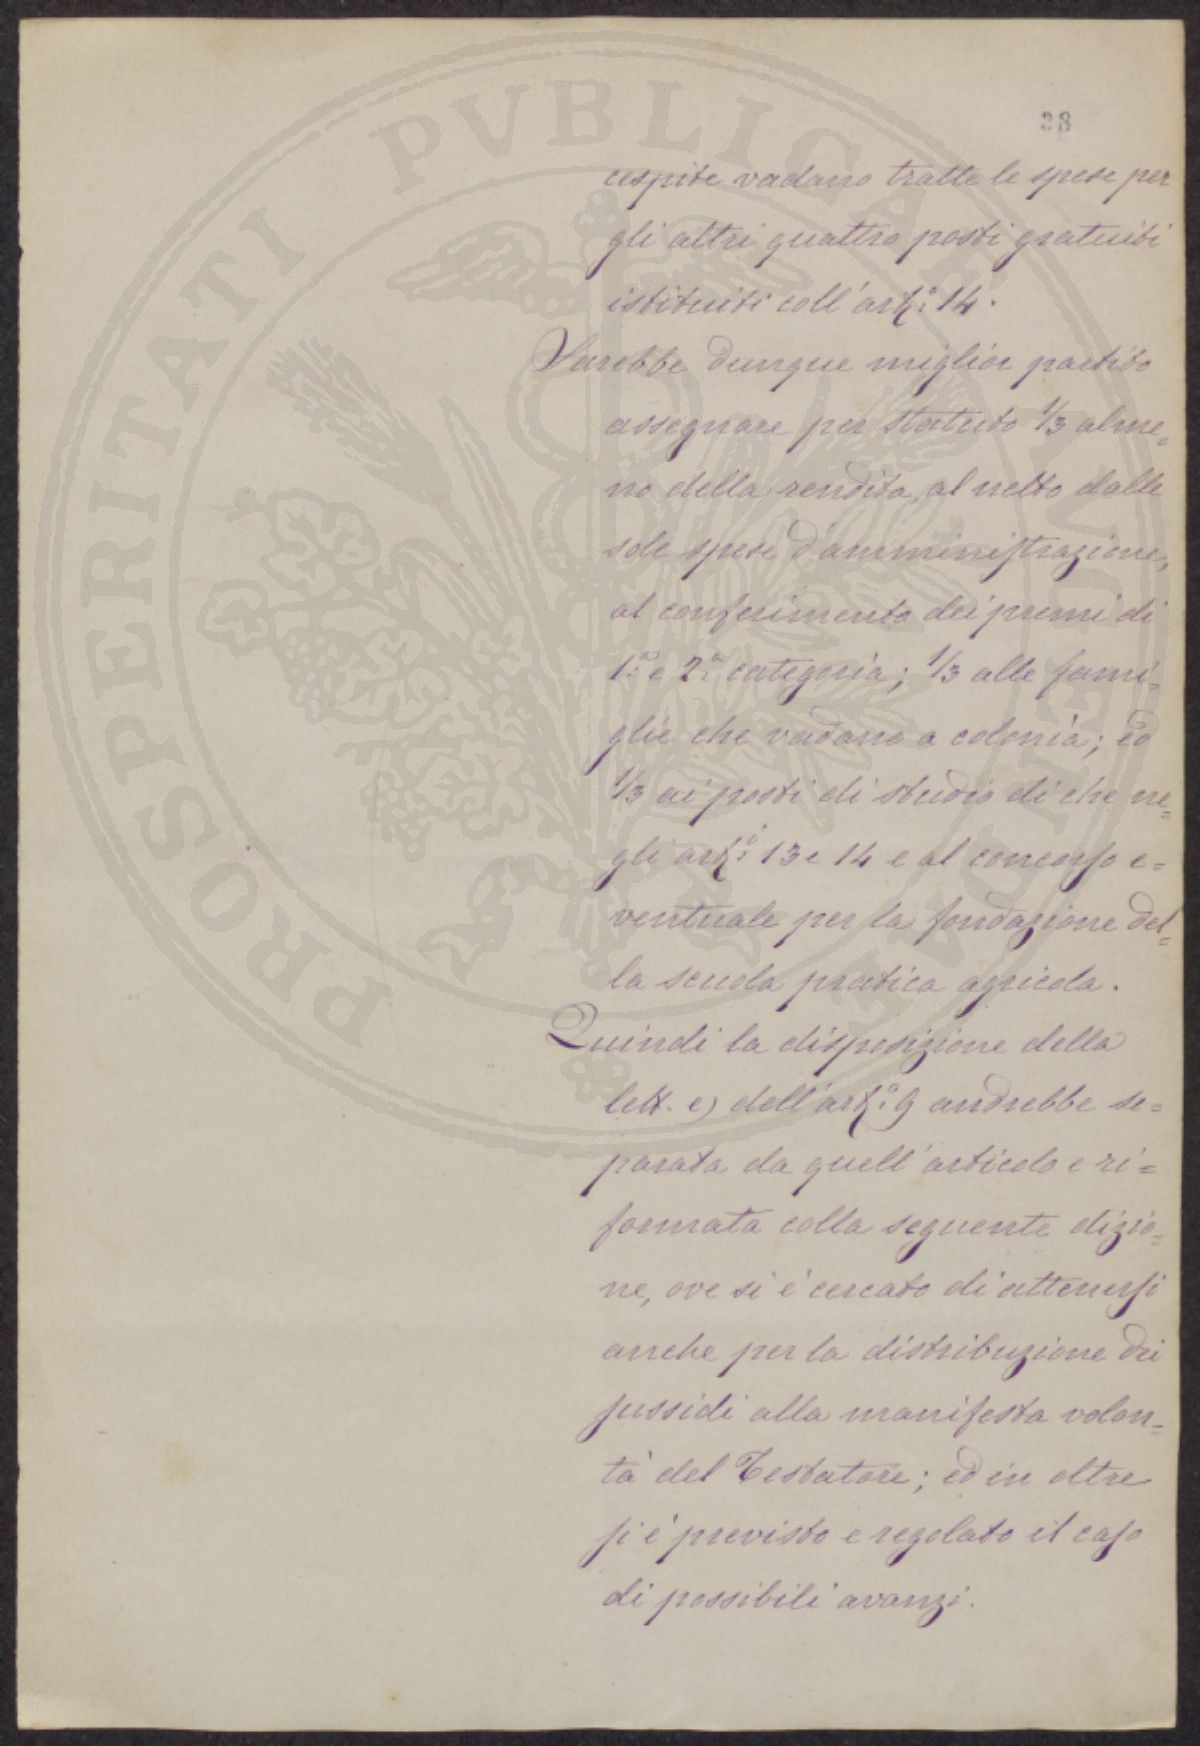 38
cespite vadano tratte le spese per
gli altri quattro posti gratuiti
istituiti coll'art.° 14.
Sarebbe dunque miglior partito
assegnare per statuto 1/3 alme=
no della rendita, al netto dalle
sole spese d'amministrazione,
al conferimento dei premi di
1.ª e 2.ª categoria; 1/3 alle fami=
glie che vadano a colonìa; ed
1/3 ai posti di studio di che ne=
gli art.i 13 e 14 e al concorso e=
ventuale per la fondazione del=
la scuola pratica agricola.
Quindi la disposizione della
lett. e) dell'art.° 9 andrebbe se=
parata da quell'articolo e ri=
formata colla seguente dizio=
ne, ove si è cercato di attenersi
anche per la distribuzione dei
sussidi alla manifesta volon=
tà del Testatore; ed in oltre
si è previsto e regolato il caso
di possibili avanzi.
PROSPERITATI PVBLICAE